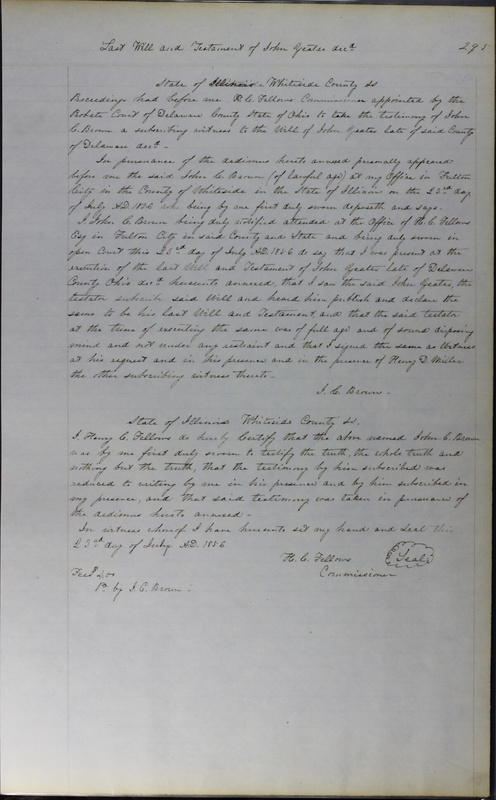 Last Will and Testament of John Geater decd 295
State of Illinois Whiteside County ss
Proceedings had before me H. C. Fellows Commissioner appointed by the
Probate Court of Delaware County State of Ohio to take the testimony of John
C. Brown a subscribing witness to the Will of John Geater late of said County
of Delaware decd -
In pursuance of the dedimus hereto annexed personally appeared
before me the said John C Brown (of lawful age) at my Office in Fulton
City in the County of Whiteside in the State of Illinois on the 23d day
of July A.D. 1856 who being by me first duly sworn deposeth and says.
I John C Brown being duly notified attended at the Office of H. C. Fellows
Esq in Fulton City in said County and State and being duly sworn in
open Court this 23d day of July A.D. 1856 do say that I was present at the
execution of the last Will and Testament of John Geater late of Delaware
County Ohio decd hereunto annexed, that I saw the said John Geater, the
testator subscribe said Will and heard him publish and declare the
same to be his last Will and Testament, and that the said testator
at the time of executing the same was of full age and of sound disposing
mind and not under any restraint and that I signed the same as Witness
at his request and in his presence and in the presence of Henry D. Miller
the other subscribing witness thereto -
J. C. Brown -
State of Illinois Whiteside County ss.
I, Henry C. Fellows do hereby Certify that the above named John C. Brown
was by me first duly sworn to testify the truth, the whole truth and
nothing but the truth, that the testimony by him subscribed was
reduced to writing by me in his presence and by him subscribed in
my presence, and that said testimony was taken in pursuance of
the dedimus hereto annexed -
In witness whereof I have hereunto set my hand and Seal this
23d day of July A.D. 1856
H. C. Fellows Seal
Commissioner
Fees
Pd by J. C. Brown -